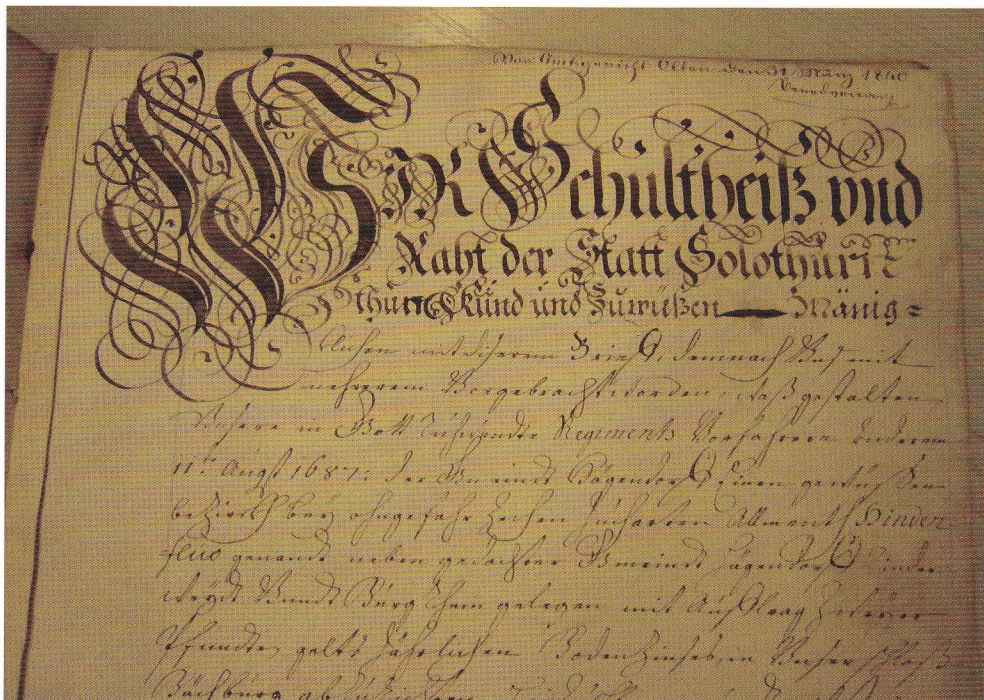 Von Amtgericht Olten den 31 März 1840
WIR Schultheiß und
Raht der Statt Solothurn
thun Kund und Zuwüßen — Mänig=
klichen mit diserem Brieff, demnach Uns mit
mehrerem Vorgebracht worden, daß gestalten
Unsere in Gott Ruhende Regiments Vorfahren underem
11ten Augst 1687. der Gmeindt Hägendorff Einen gewüssen
bezirckh bey ohngefähr Zechen Jucharten Allmenth Hinder
flüo genandt neben gedachter Gmeindt Hägendorff Hinder
weydt Undt Bürg gelegen mit Aufflaag Zweyer
Pfundten gelts Jährlichen Bodenzinses, in Unser Schloß
Bächburg